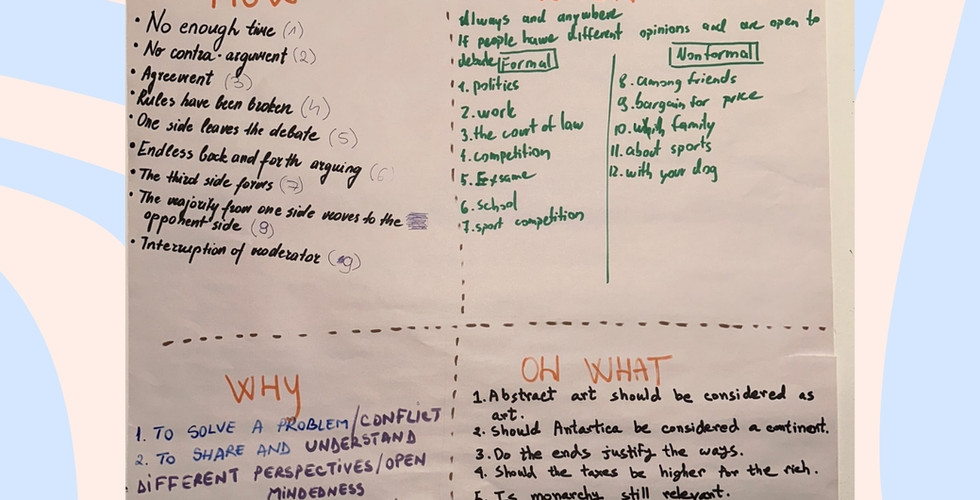 HOW
• No enough time (1)
• No contra-argument (2)
• Agreement (3)
• Rules have been broken (4)
• One side leaves the debate (5)
• Endless back and forth arguing (6)
• The third side forms (7)
• The majority from one side moves to the
opponent side (8)
• Interruption of moderator (9)
Always and anywhere
If people have different opinions and are open to
debate
Formal
1. politics
2. work
3. the court of law
4. competition
5. Exsame
6. school
7. sport competition
Nonformal
8. among friends
9. bargain for price
10. whith family
11. about sports
12. with your dog
WHY
1. TO SOLVE A PROBLEM/CONFLICT
2. TO SHARE AND UNDERSTAND
DIFFERENT PERSPECTIVES/OPEN
MINDEDNESS
ON WHAT
1. Abstract art should be considered as
art.
2. Should Antartica be considered a continent.
3. Do the ends justify the ways.
4. Should the taxes be higher for the rich.
5. Is monarchy still relevant.